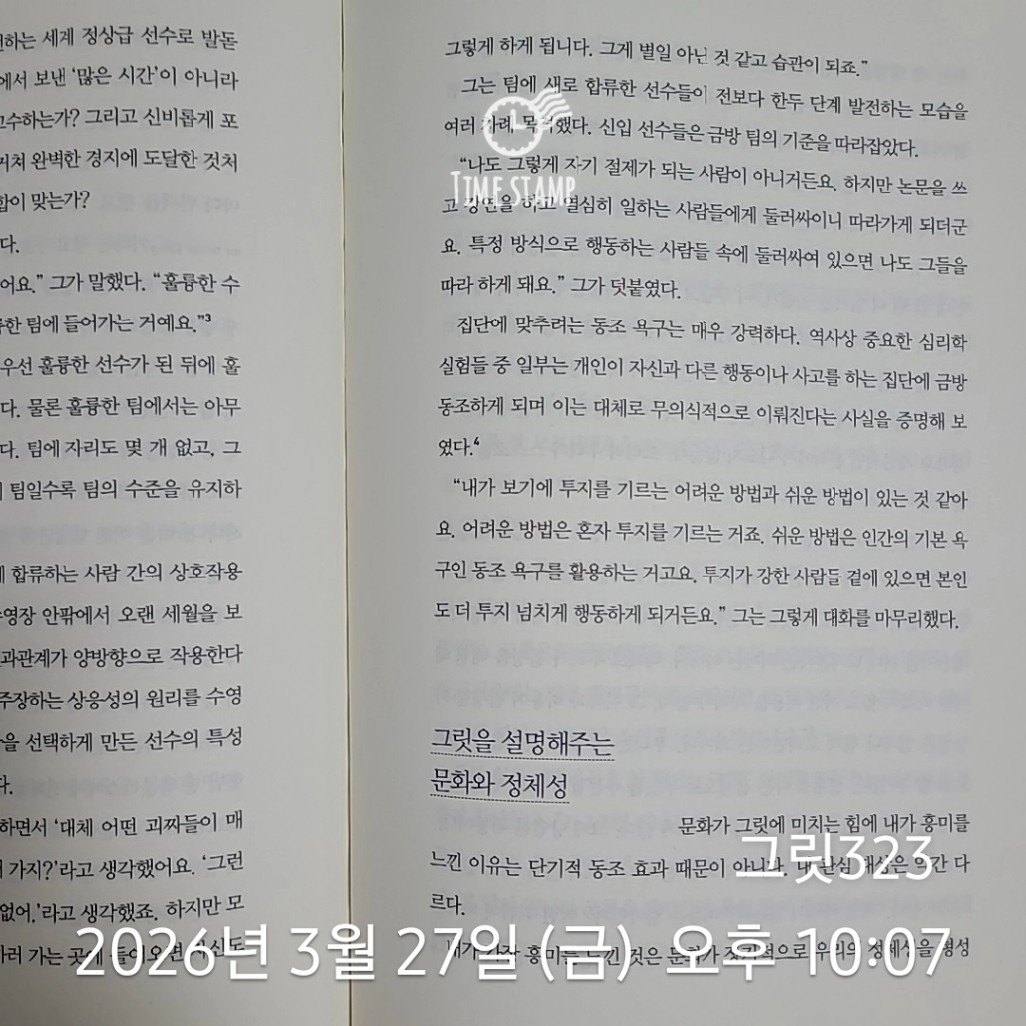 하는 세계 정상급 선수로 발돋
에서 보낸 ‘많은 시간’이 아니라
고수하는가? 그리고 신비롭게 포
거쳐 완벽한 경지에 도달한 것처
합이 맞는가?
다.
어요.” 그가 말했다. “훌륭한 수
한 팀에 들어가는 거예요.”3
우선 훌륭한 선수가 된 뒤에 훌
다. 물론 훌륭한 팀에서는 아무
다. 팀에 자리도 몇 개 없고, 그
팀일수록 팀의 수준을 유지하
합류하는 사람 간의 상호작용
영장 안팎에서 오랜 세월을 보
과관계가 양방향으로 작용한다
주장하는 상응성의 원리를 수영
을 선택하게 만든 선수의 특성
다.
하면서 ‘대체 어떤 괴짜들이 매
가지?’라고 생각했어요. ‘그런
없어.’라고 생각했죠. 하지만 모
러 가는 곳에 들어오면 자신도
그렇게 하게 됩니다. 그게 별일 아닌 것 같고 습관이 되죠.”
그는 팀에 새로 합류한 선수들이 전보다 한두 단계 발전하는 모습을
여러 차례 목격했다. 신입 선수들은 금방 팀의 기준을 따라잡았다.
“나도 그렇게 자기 절제가 되는 사람이 아니거든요. 하지만 논문을 쓰
고 강연을 하고 열심히 일하는 사람들에게 둘러싸이니 따라가게 되더군
요. 특정 방식으로 행동하는 사람들 속에 둘러싸여 있으면 나도 그들을
따라 하게 돼요.” 그가 덧붙였다.
집단에 맞추려는 동조 욕구는 매우 강력하다. 역사상 중요한 심리학
실험들 중 일부는 개인이 자신과 다른 행동이나 사고를 하는 집단에 금방
동조하게 되며 이는 대체로 무의식적으로 이뤄진다는 사실을 증명해 보
였다.4
“내가 보기에 투지를 기르는 어려운 방법과 쉬운 방법이 있는 것 같아
요. 어려운 방법은 혼자 투지를 기르는 거죠. 쉬운 방법은 인간의 기본 욕
구인 동조 욕구를 활용하는 거고요. 투지가 강한 사람들 곁에 있으면 본인
도 더 투지 넘치게 행동하게 되거든요.” 그는 그렇게 대화를 마무리했다.
그릿을 설명해주는
문화와 정체성
문화가 그릿에 미치는 힘에 내가 흥미를
느낀 이유는 단기적 동조 효과 때문이 아니다. 내 관심 대상은 약간 다
르다.
내가 가장 흥미를 느낀 것은 문화가 장기적으로 우리의 정체성을 형성
TIME STAMP
그릿323
2026년 3월 27일 (금) 오후 10:07